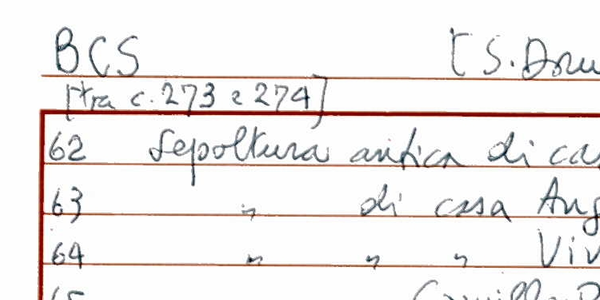 BCS [S. Dom
[tra c. 273 e 274]
62 Sepoltura antica di ca
63 " di casa Ang
64 " " " Viv
65 Camillo